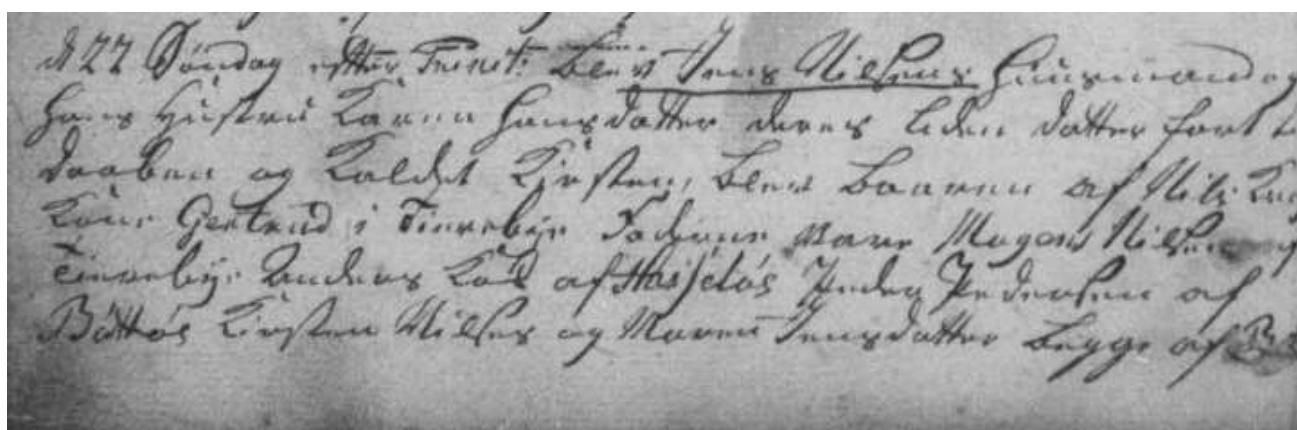 d 22 Søndag efter Trinit: blev Jens Nilsens Huusmand og
hans Hustru Karen Hansdatter deres liden datter ført t
daaben og kaldet Kirsten, blev baaren af Nils
Kone Gertrud i Tierebye Fadderne vare Mogens Nilsen og
Tierebye Anders af Hasseløs Peder Pedersen af
Bøttøs Kirsten Nilses og Maren Jensdatter begge af